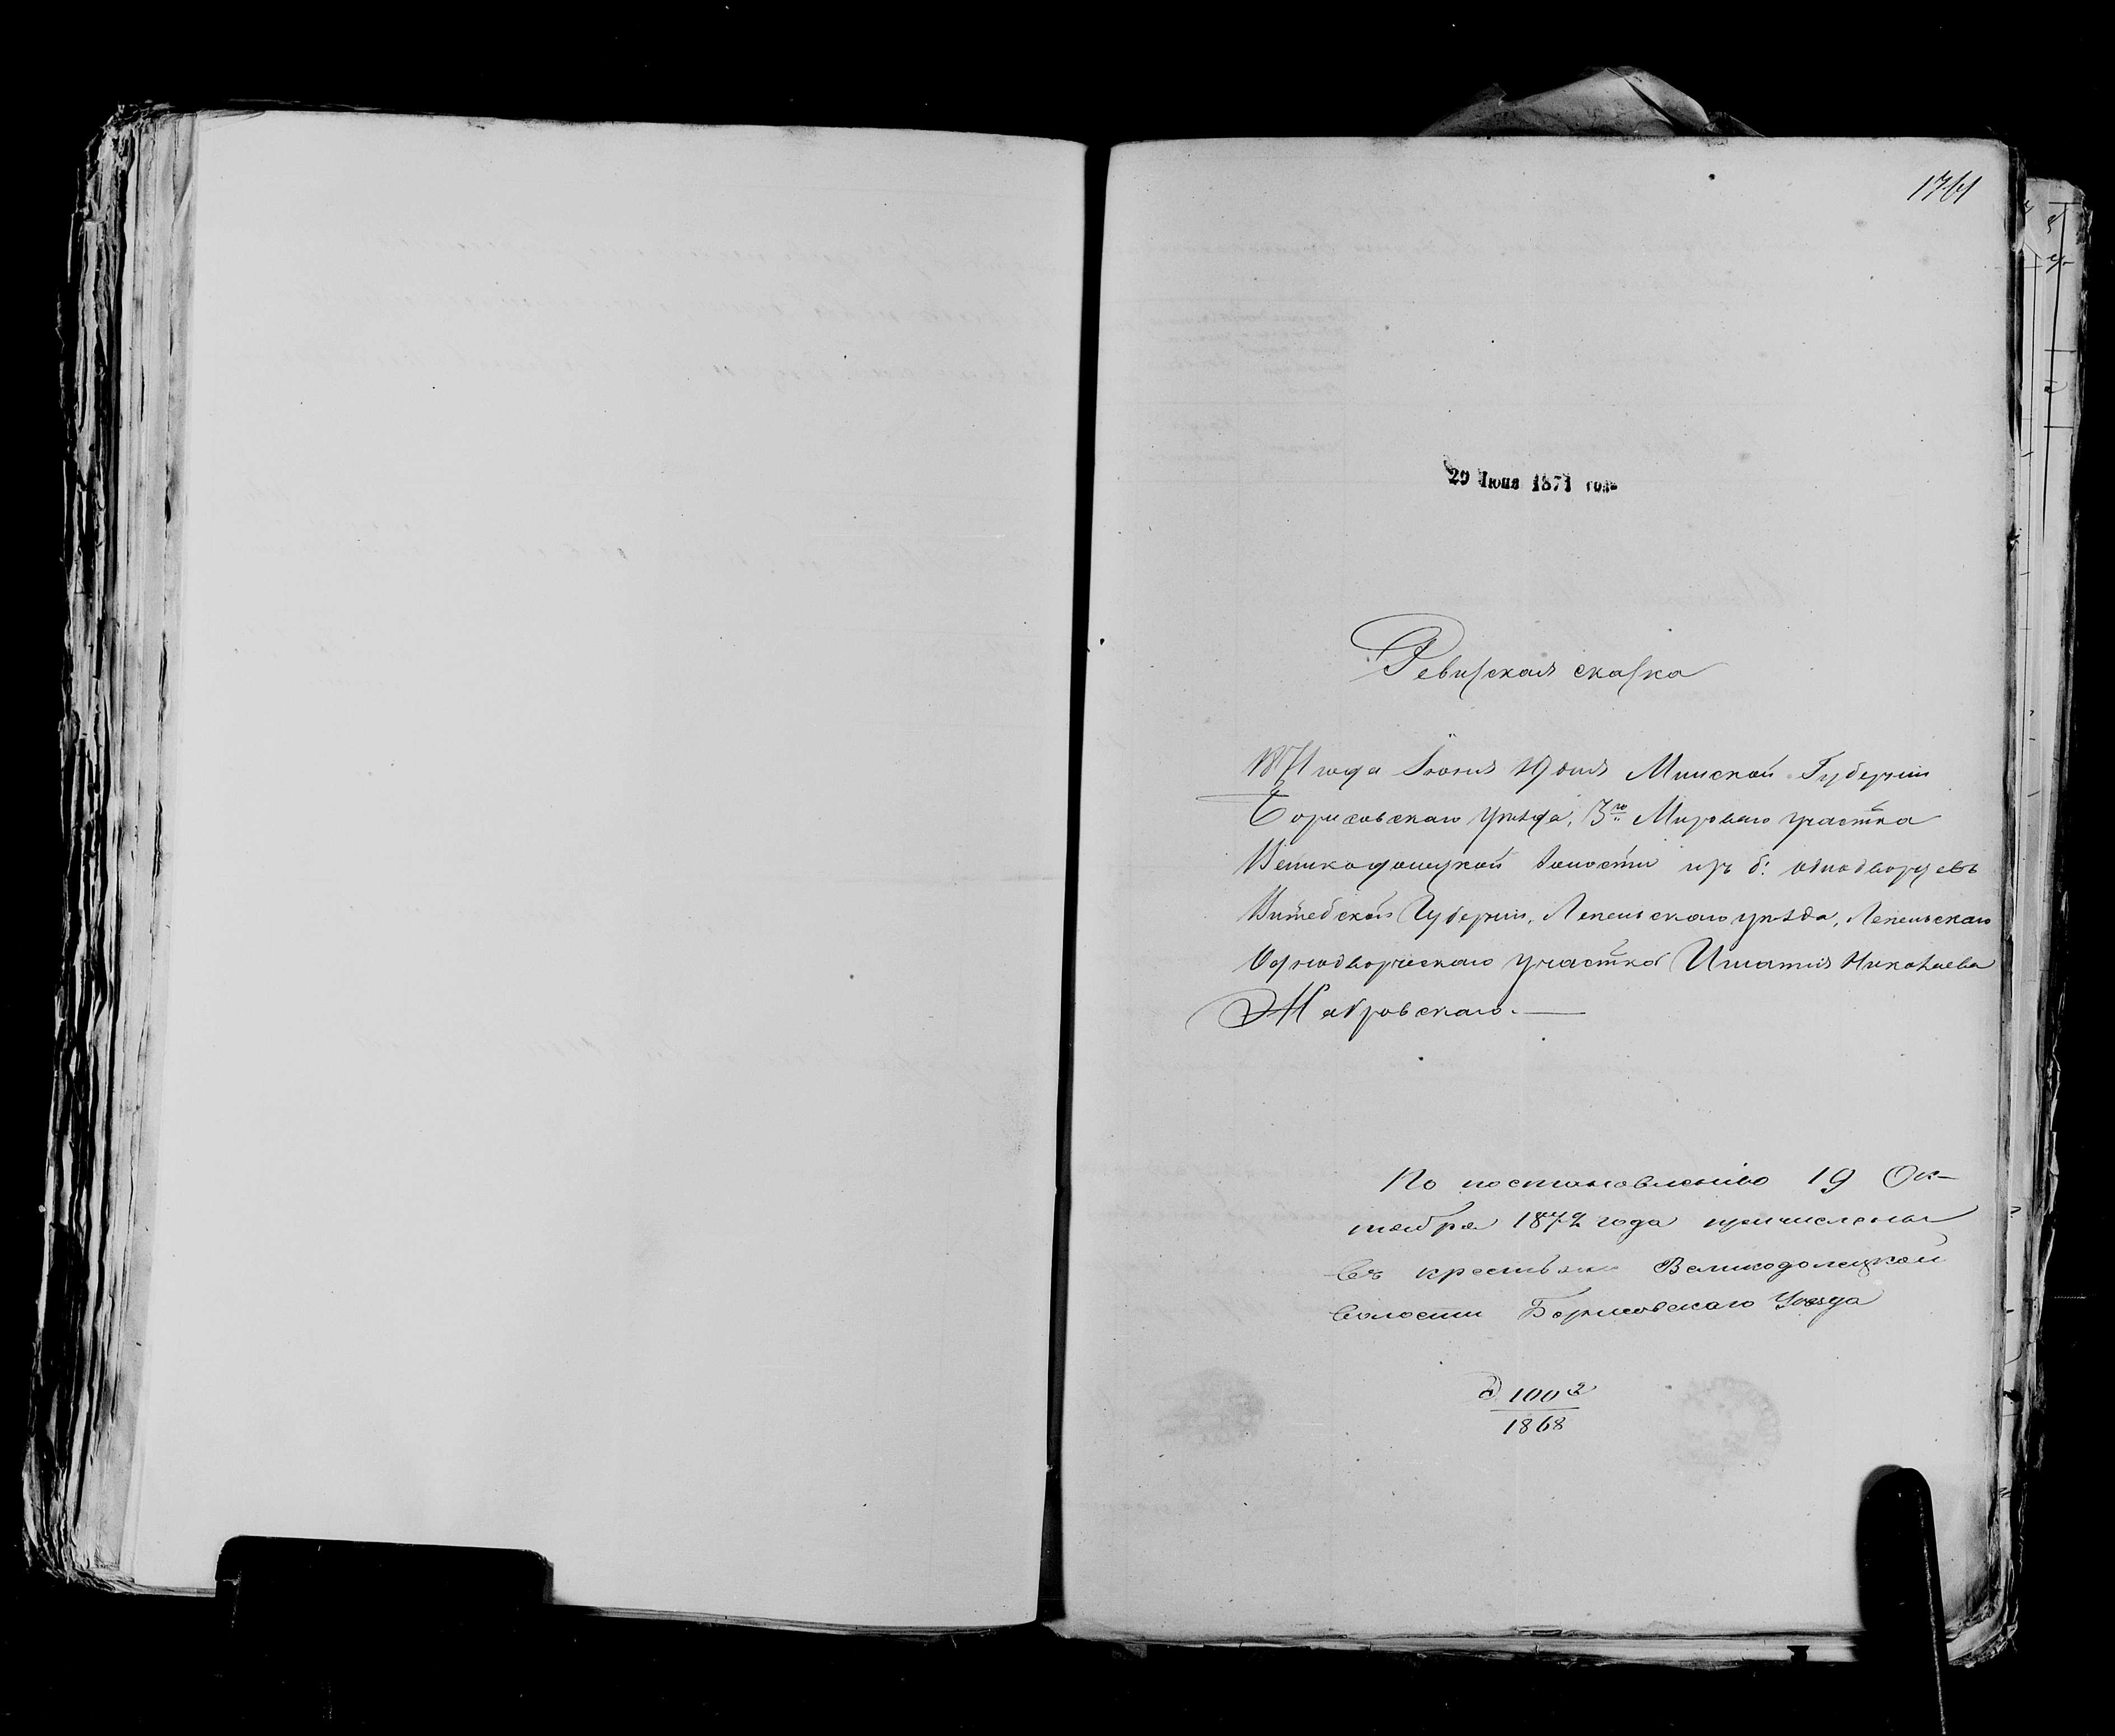 1761
29 Июня 1871 года
Ревизская сказка
1871 года Июня 19 дня Минской Губернии
Борисовскаго уѣзда, 3го Мироваго участка
Великодолецкой волости изъ б: однодворцевъ
Витебской Губерніи, Лепельскаго уѣзда, Лепельскаго
Однодворческаго участка Игнатія Николаева
Жабровскаго.
По постановленію 19 Ок-
тября 1872 года причислены
въ крестьяне Великодолецкой
волости Борисовскаго Уѣзда
д 1002
1868